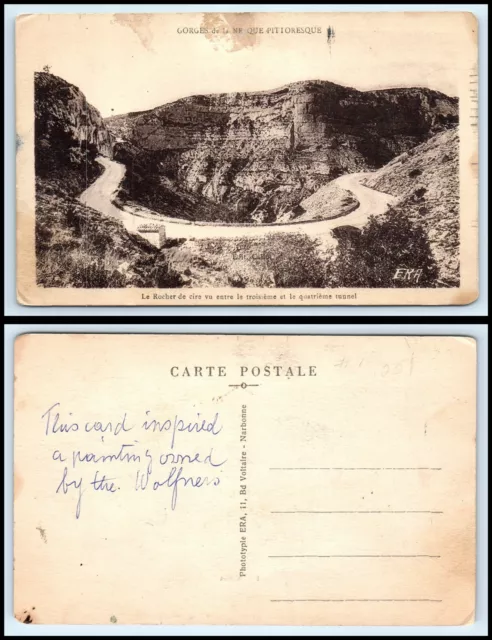 GORGES de la NE QUE PITTORESQUE
ERA
Le Rocher de cire vu entre le troisième et le quatrième tunnel
CARTE POSTALE
This card inspired
a painting owned
by the Wolfners
Phototypie ERA, 11, Bd Voltaire - Narbonne